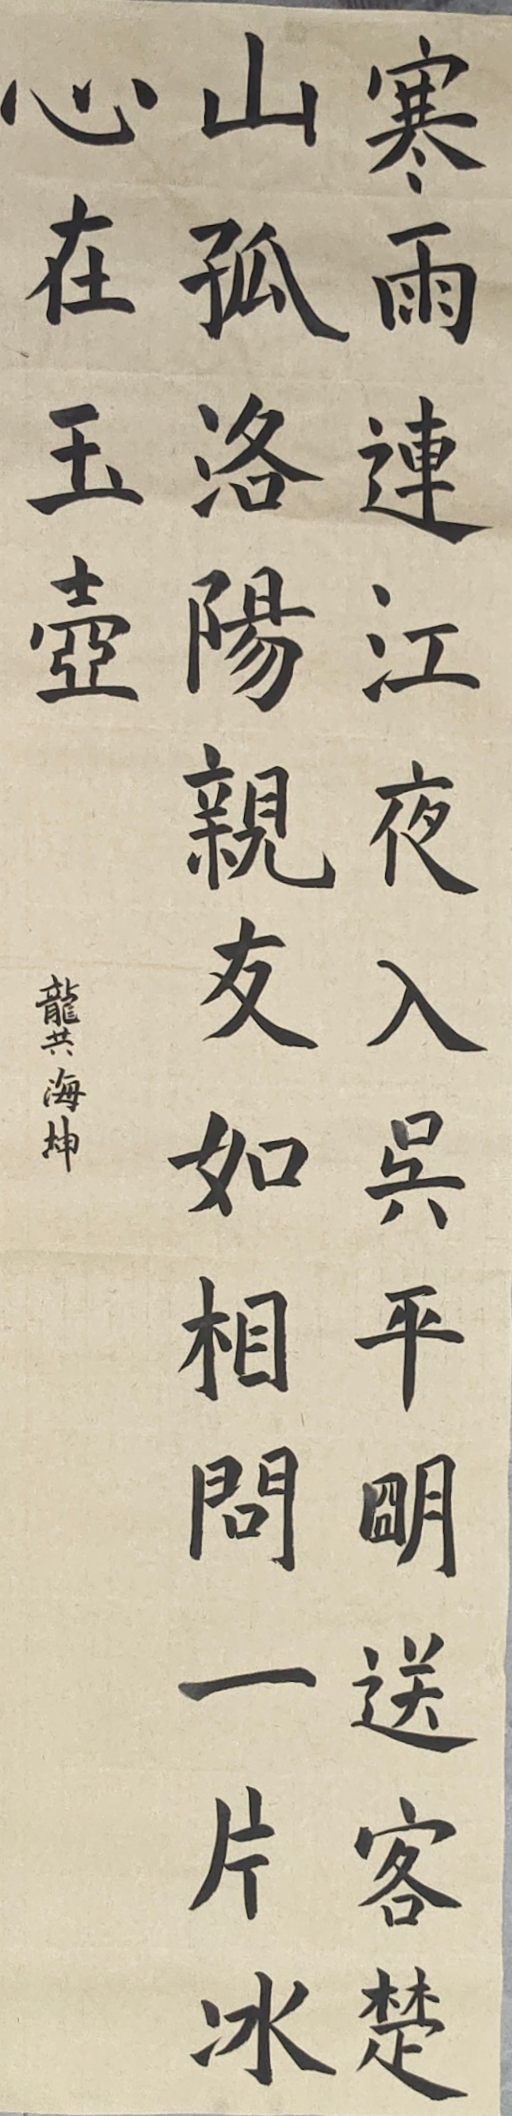 寒雨連江夜入吳平明送客楚
山孤洛陽親友如相問一片冰
心在玉壺
龔海坤